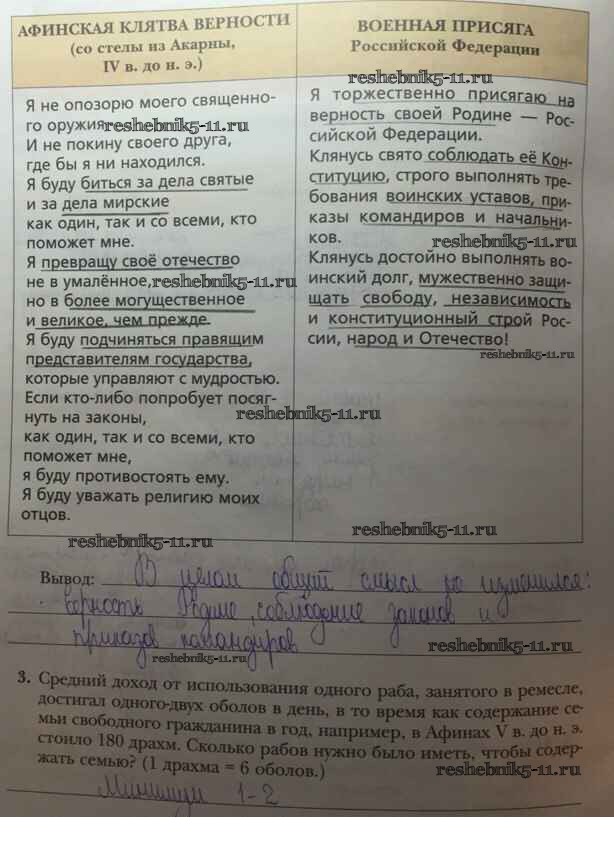 АФИНСКАЯ КЛЯТВА ВЕРНОСТИ
(со стелы из Акарны,
IV в. до н. э.)
ВОЕННАЯ ПРИСЯГА
Российской Федерации
reshebnik5-11.ru
Я не опозорю моего священно-
го оружия
reshebnik5-11.ru
И не покину своего друга,
где бы я ни находился.
Я буду биться за дела святые
и за дела мирские
как один, так и со всеми, кто
поможет мне.
Я превращу своё отечество
не в умалённое,
reshebnik5-11.ru
но в более могущественное
и великое, чем прежде.
Я буду подчиняться правящим
представителям государства,
которые управляют с мудростью.
Если кто-либо попробует посяг-
нуть на законы,
reshebnik5-11.ru
как один, так и со всеми, кто
поможет мне,
я буду противостоять ему.
Я буду уважать религию моих
отцов.
Я торжественно присягаю на
верность своей Родине — Рос-
сийской Федерации.
Клянусь свято соблюдать её Кон-
ституцию, строго выполнять тре-
бования воинских уставов, при-
казы командиров и начальни-
ков.
reshebnik5-11.ru
Клянусь достойно выполнять во-
инский долг, мужественно защи-
щать свободу, независимость
и конституционный строй Рос-
сии, народ и Отечество!
reshebnik5-11.ru
reshebnik5-11.ru
reshebnik5-11.ru
Вывод: В целом общий смысл не изменился:
верность Родине, соблюдение законов и
приказов командиров
reshebnik5-11.ru
3. Средний доход от использования одного раба, занятого в ремесле,
достигал одного-двух оболов в день, в то время как содержание се-
мьи свободного гражданина в год, например, в Афинах V в. до н. э.
стоило 180 драхм. Сколько рабов нужно было иметь, чтобы содер-
жать семью? (1 драхма = 6 оболов.)
reshebnik5-11.ru
Минимум 1-2